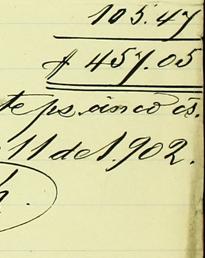 105.47
$ 457.05
te ps. cinco cs.
11 de 1.902.